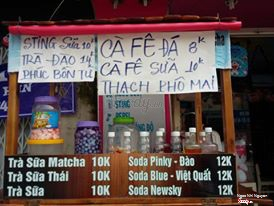 STING SỮA 10K
TRÀ - ĐÀO 14K
PHÚC BỒN TỬ
CÀ FÊ ĐÁ 8K
CÀ FÊ SỮA 10K
THẠCH PHÔ MAI
Trà Sữa Matcha 10K
Trà Sữa Thái 10K
Trà Sữa 10K
Soda Pinky - Đào 12K
Soda Blue - Việt Quất 12K
Soda Newsky 12K